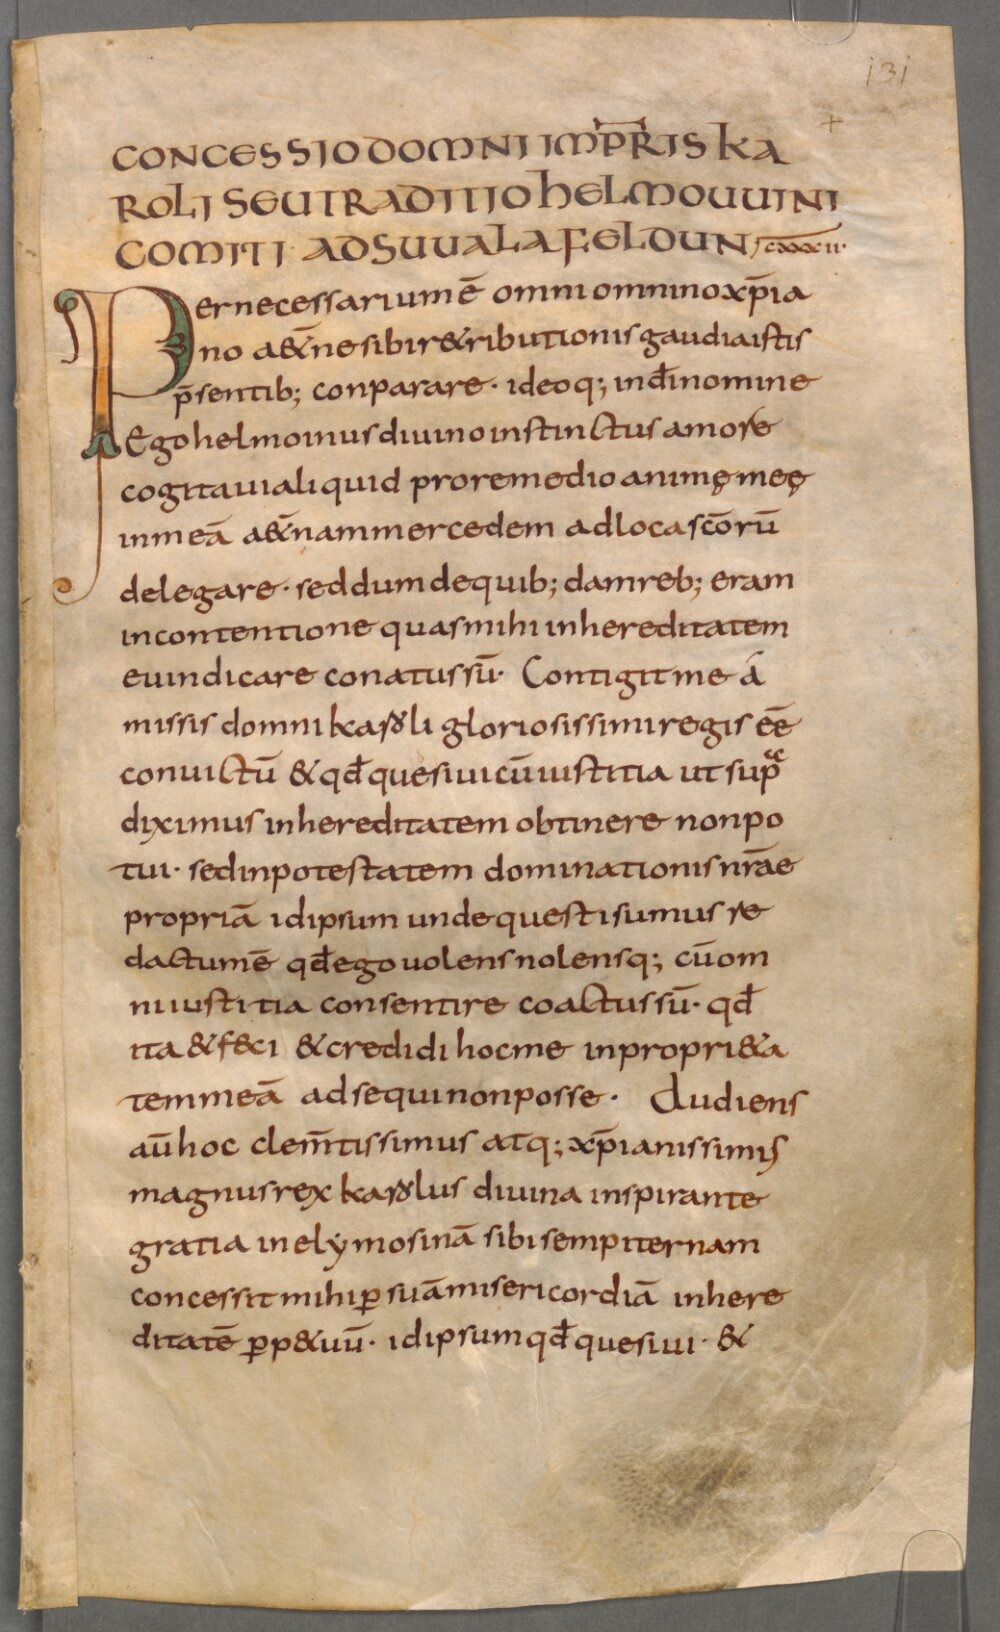 131
+
CONCESSIO DOMNI IMP̄R̄IS KA
ROLI SEU TRADITIO HELMOUUINI
COMITI· AD SUUALAFELDUN, c̅x̅x̅x̅ii·
Per necessarium ē omni omnino xp̄ia
no a&̄ne sibi r&ributionis gaudia istis
p̄sentib; conparare· ideoq; in dī nomine
Ego helmoinus diuino instinctus amore
cogitaui aliquid pro remedio animę meę
in meā a&̄nam mercedem ad loca scōrū
delegare· sed dum de quib;dam reb; eram
in contentione quas mihi in hereditatem
euindicare conatus sū· Contigit me á
missis domni karoli gloriosissimi regis eē
conuictū & qđ quesiui cū iustitia ut sup̷ͣ
diximus in hereditatem obtinere non po
tui· sed in potestatem dominationis nr̄ae
propriā id ipsum unde questi sumus re
dactum ē qđ ego uolens nolensq; cū om
ni iustitia consentire coactus sū· qđ
ita & f&ci & credidi hoc me in propri&a
tem meā adsequi non posse· Audiens
aū hoc clem̄tissimus atq; xp̄ianissimis
magnus rex karolus diuina inspirante
gratia in elẏmosinā sibi sempiternam
concessit mihi ꝑ suā misericordiā in here
ditatē ꝑp&uū· id ipsum qđ quesiui· &